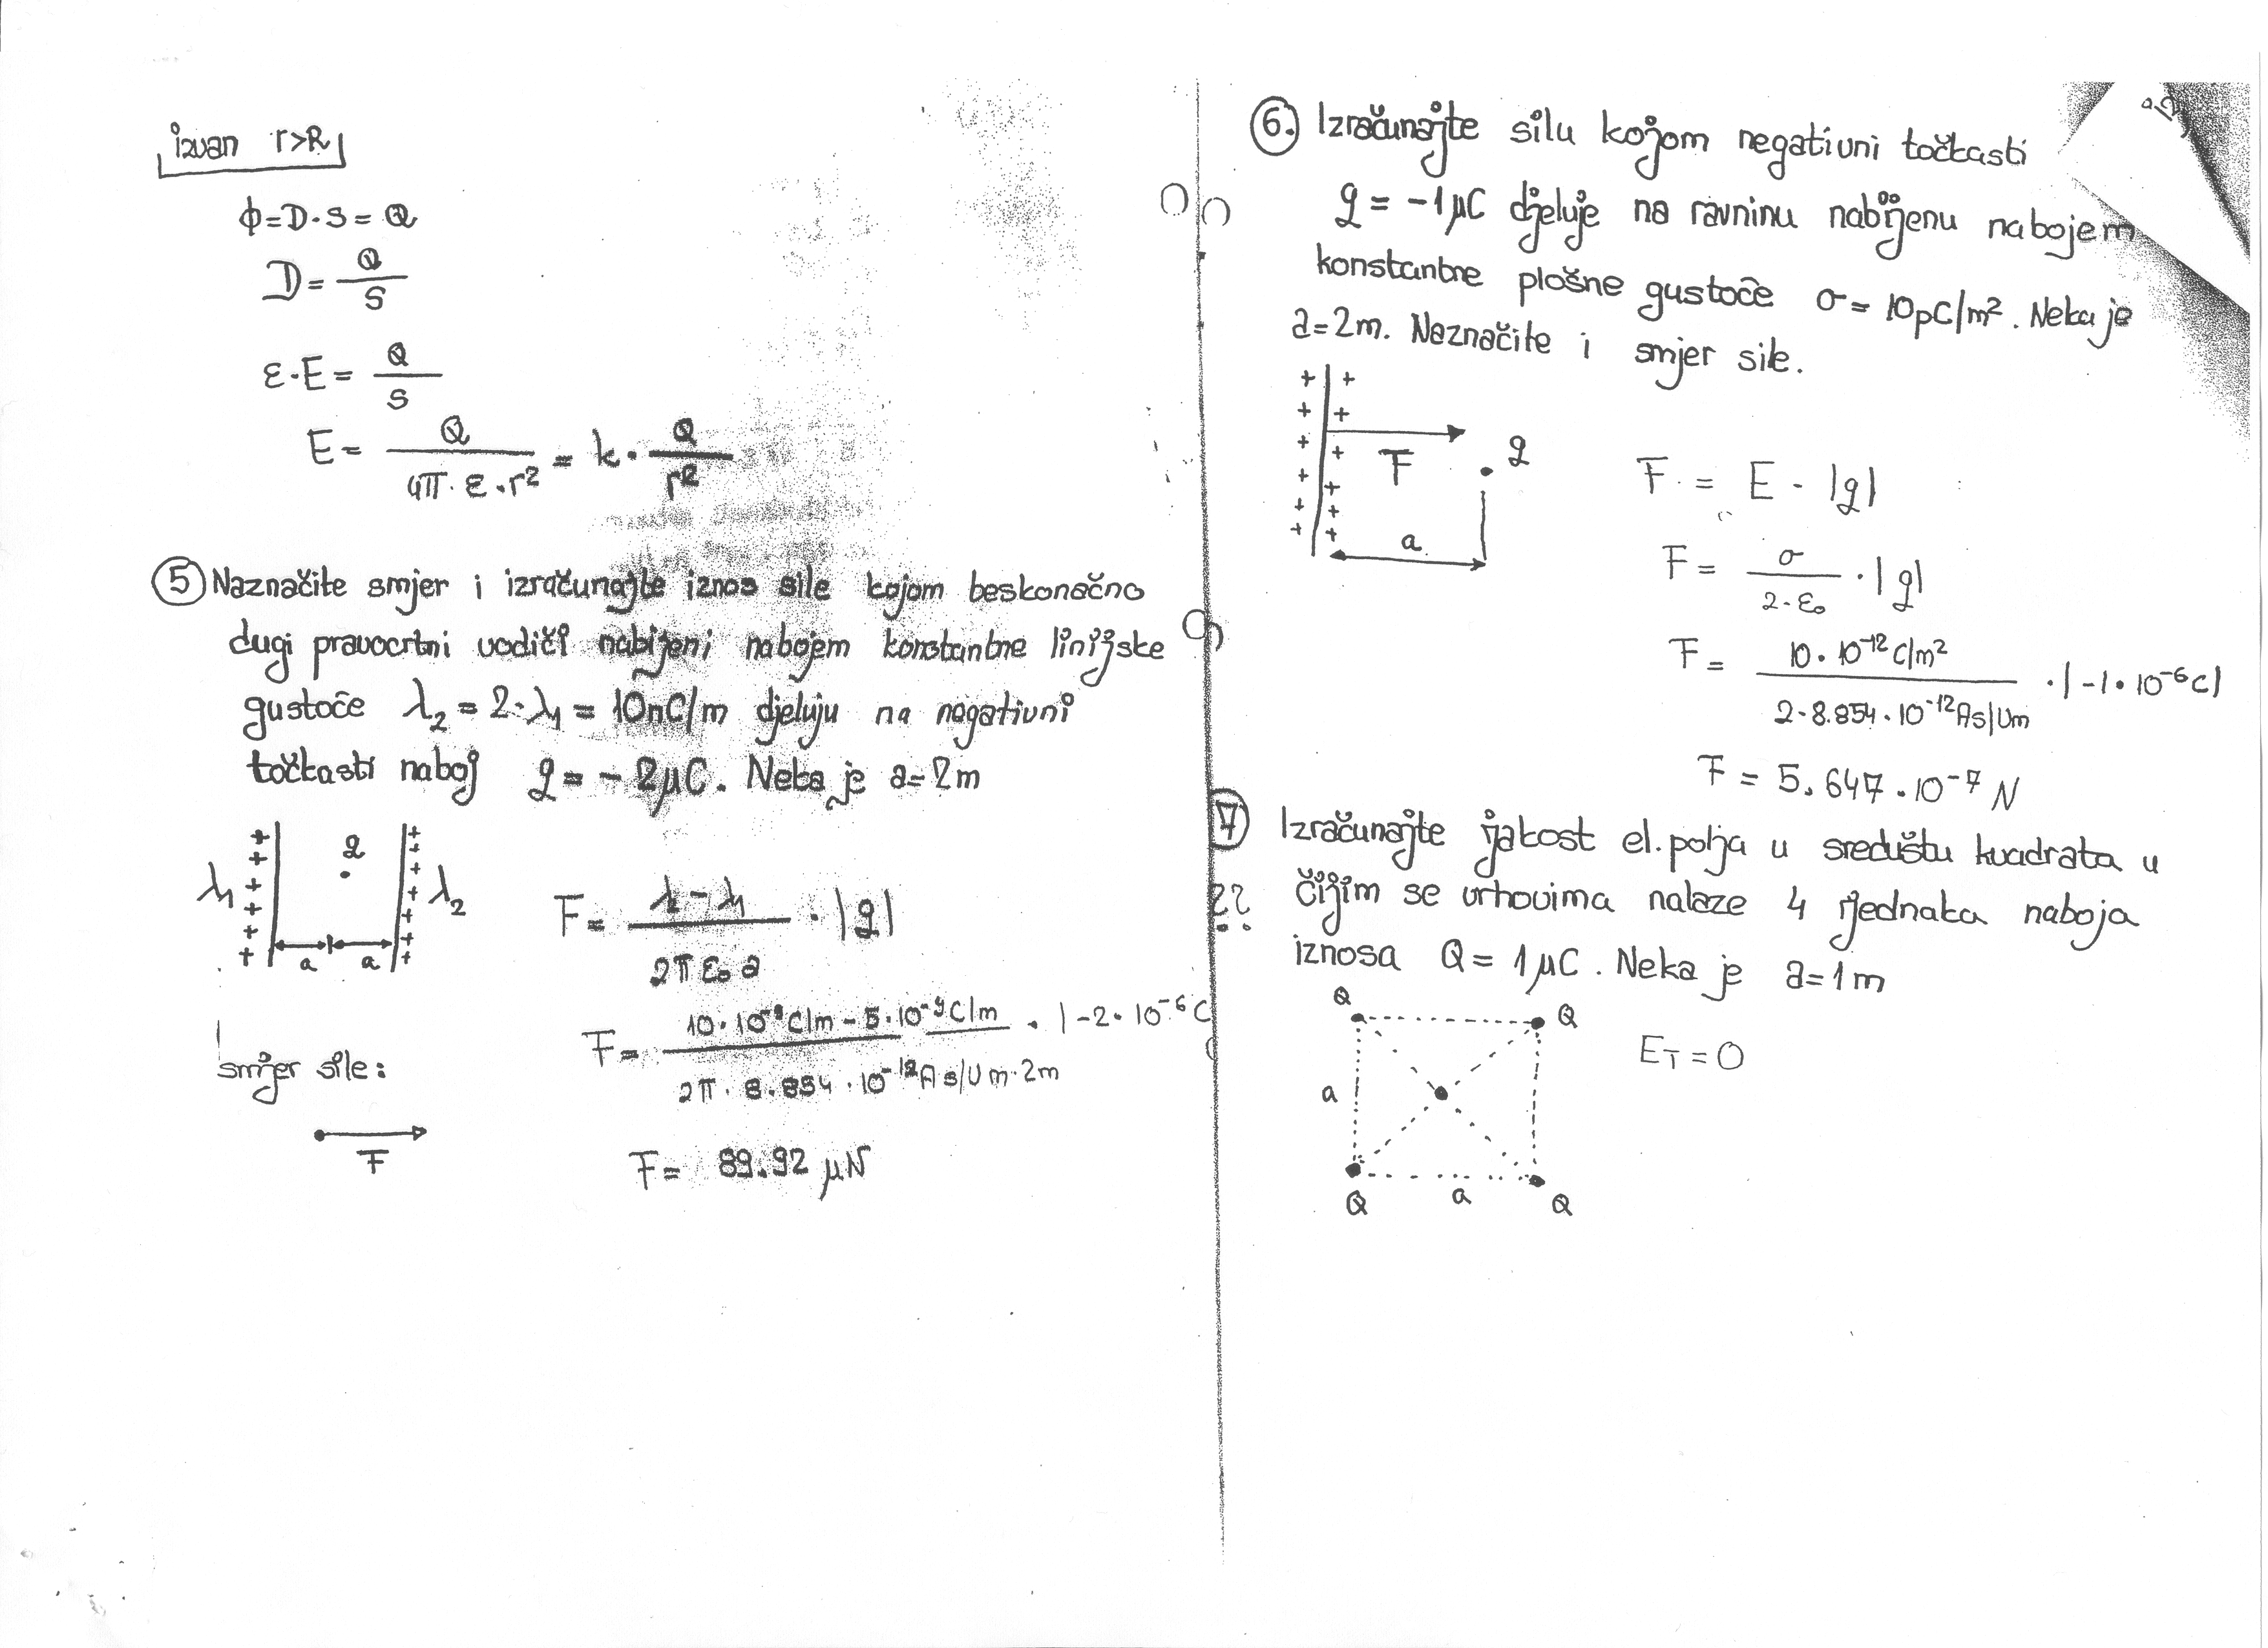 izvan r>R
ϕ=D·S=Q
D=Q/S
ε·E=Q/S
E=Q/(4π·ε·r²)=k·Q/r²
⑤ Naznačite smjer i izračunajte iznos sile kojom beskonačno
dugi pravocrtni vodiči nabijeni nabojem konstantne linijske
gustoće λ₂=2·λ₁=10nC/m djeluju na negativni
točkasti naboj q=-2μC. Neka je a=2m
λ₁ + + + + + + +
q
+ + + + + + + λ₂
a a
F=(λ₂-λ₁)/(2πε₀a)·|q|
F=(10·10⁻⁹C/m-5·10⁻⁹C/m)/(2π·8.854·10⁻¹²As/Vm·2m)·|-2·10⁻⁶C
F=89.92 μN
smjer sile:
F
⑥. Izračunajte silu kojom negativni točkasti
q=-1μC djeluje na ravninu nabijenu nabojem
konstantne plošne gustoće σ=10pC/m². Neka je
a=2m. Naznačite i smjer sile.
+ + + + + + + + + + + +
F
q
a
F=E·|q|
F=σ/(2·ε₀)·|q|
F=(10·10⁻¹²C/m²)/(2·8.854·10⁻¹²As/Vm)·|-1·10⁻⁶C|
F=5.647·10⁻⁷N
⑦ Izračunajte jakost el.polja u središtu kvadrata u
?? čijim se vrhovima nalaze 4 jednaka naboja
iznosa Q=1μC. Neka je a=1m
Q Q
a
Q a Q
E_T=0